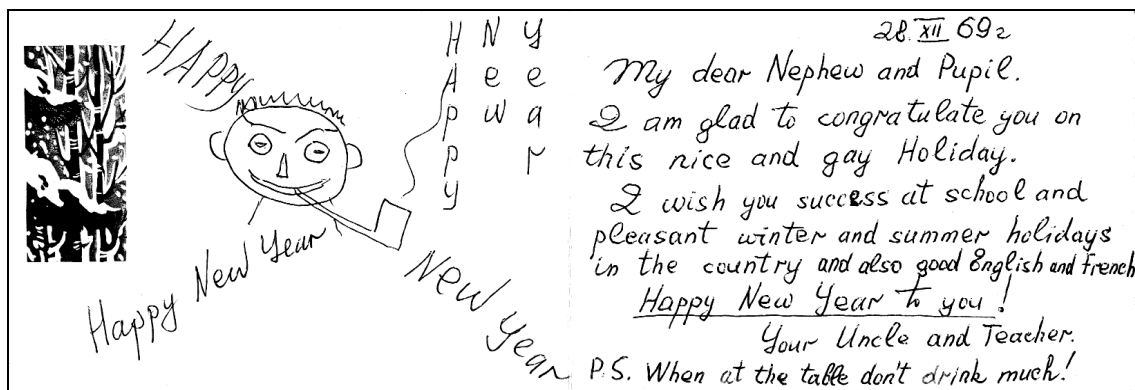 HAppy
New year
Happy New Year
HAppy
New
Year
28. XII 69г
My dear Nephew and Pupil.
I am glad to congratulate you on
this nice and gay Holiday.
I wish you success at school and
pleasant winter and summer holidays
in the country and also good English and French
Happy New Year to you!
Your Uncle and Teacher.
P.S. When at the table don't drink much!